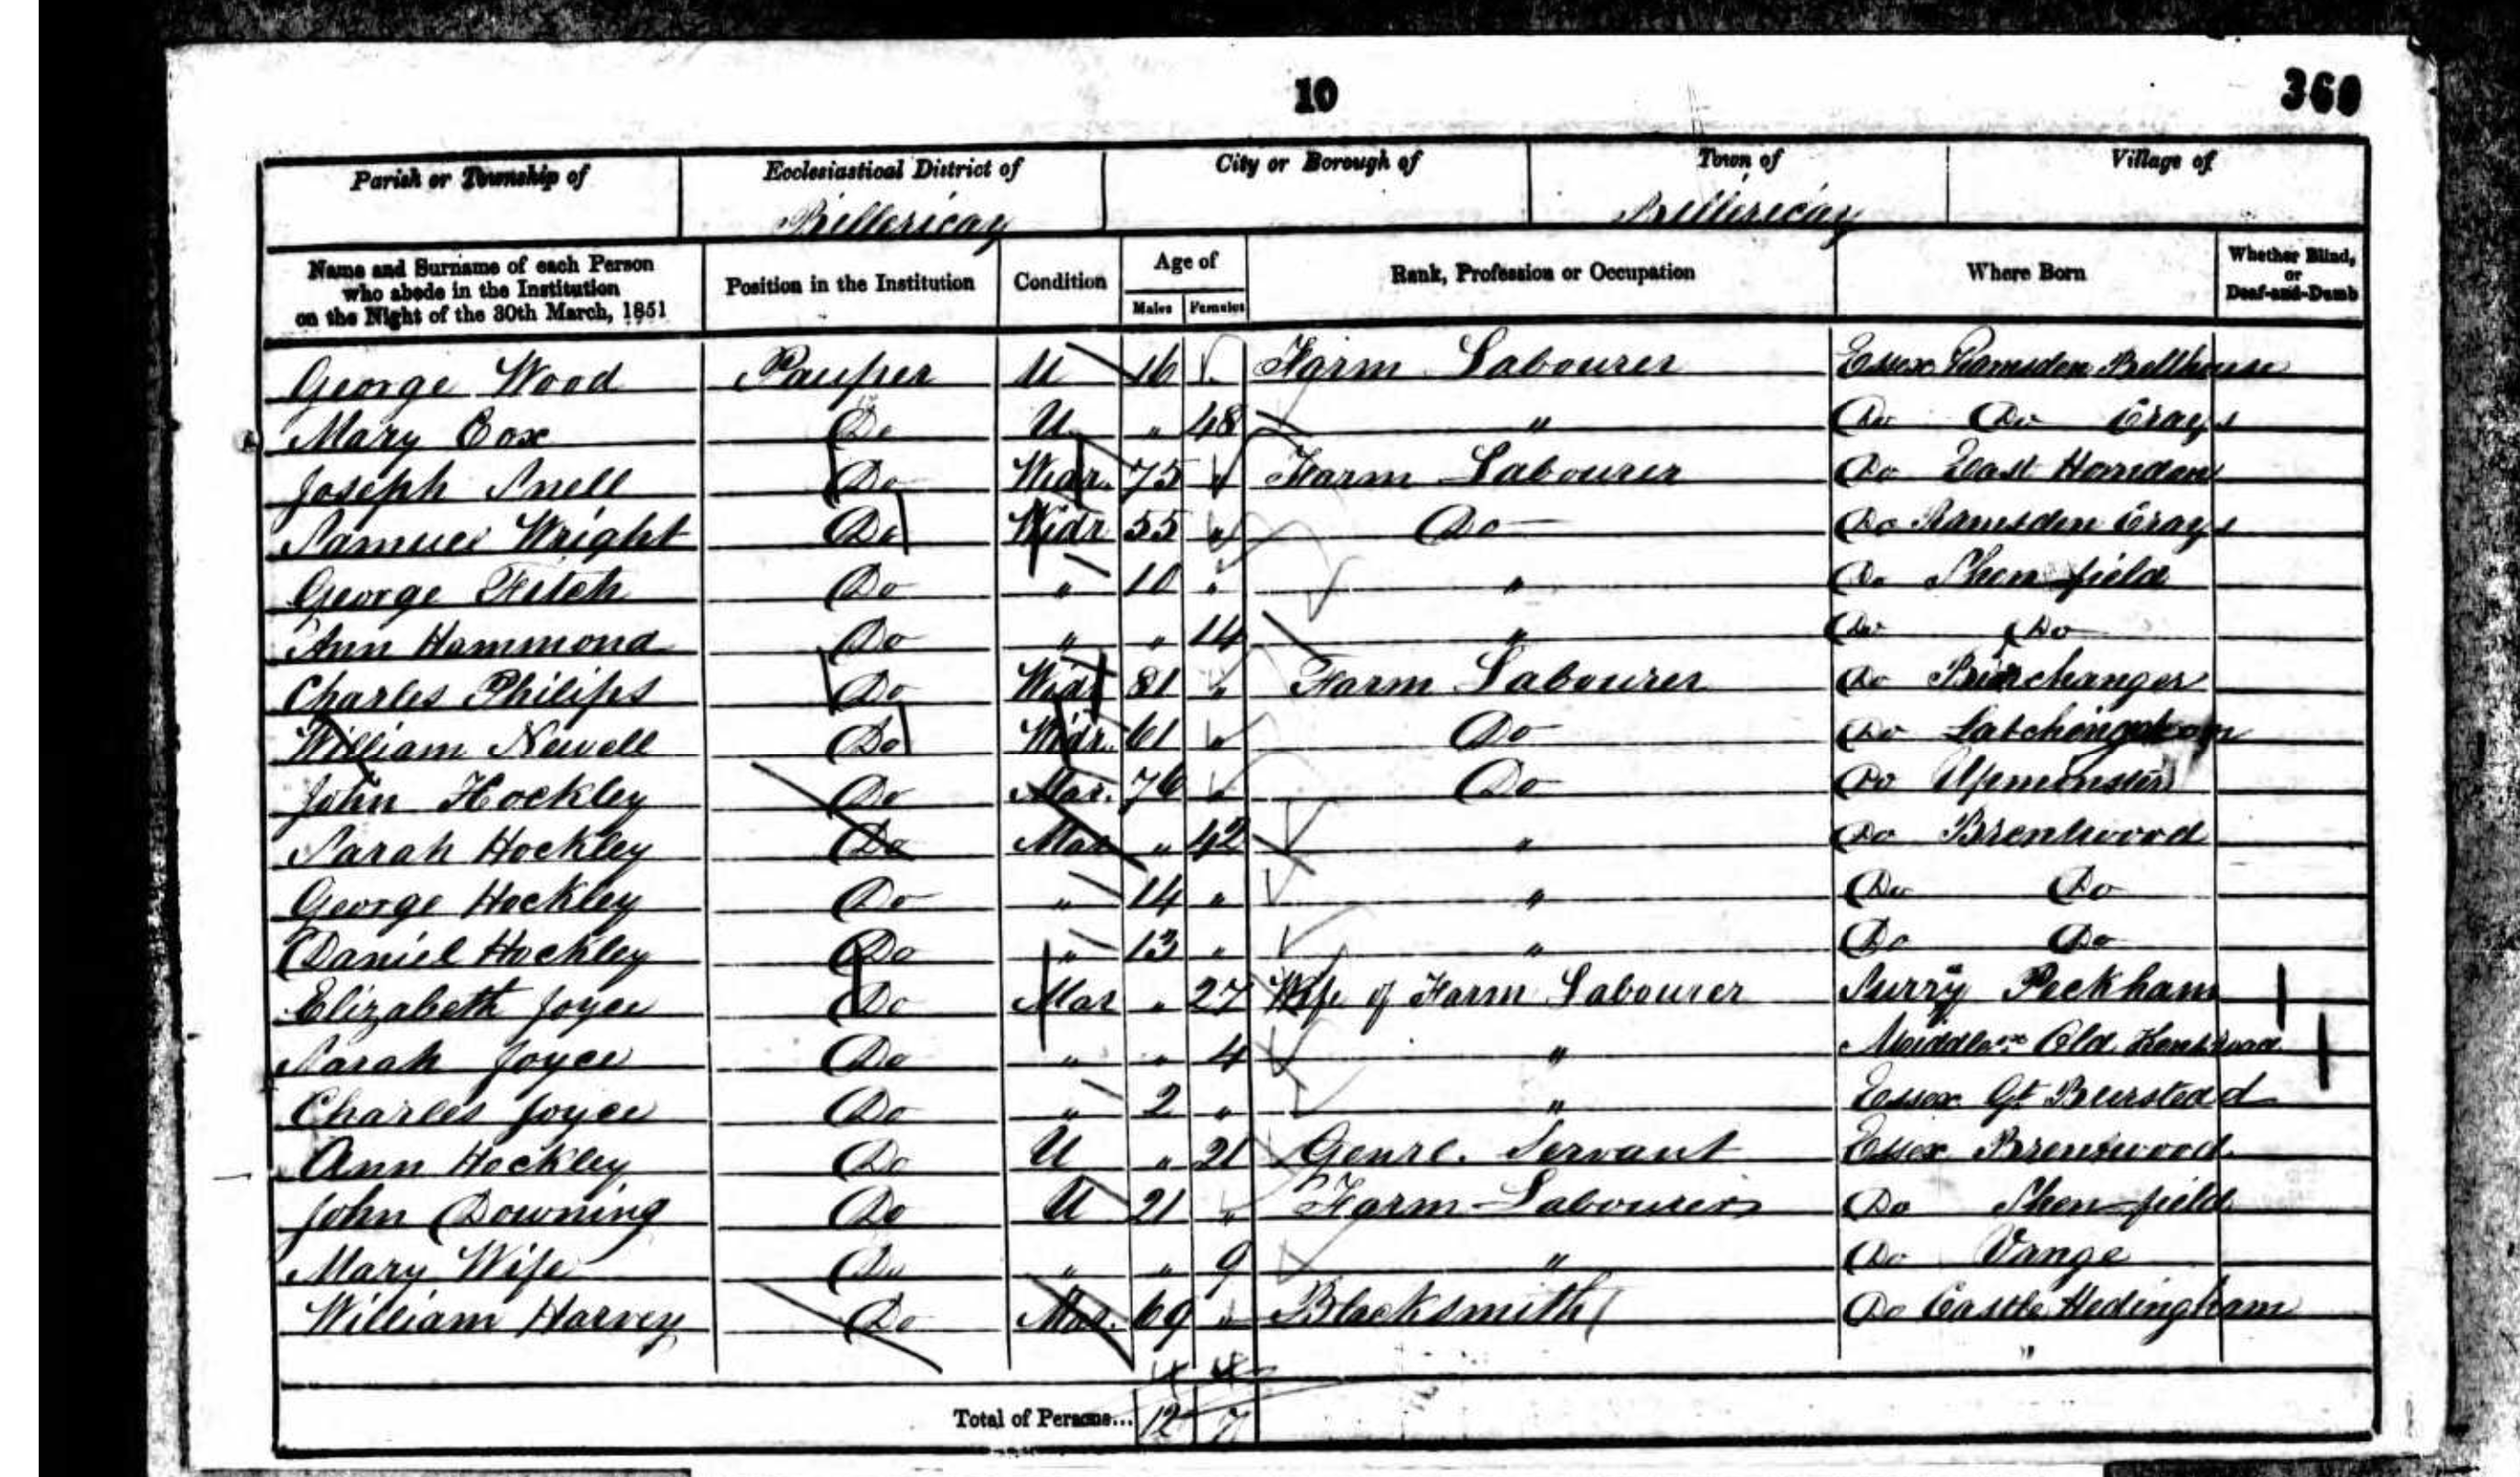 10
360
Parish or Township of Ecclesiastical District of City or Borough of Town of Village of
Billericay Billericay
Name and Surname of each Person who abode in the Institution on the Night of the 30th March, 1851 Position in the Institution Condition Age of Males Females Rank, Profession or Occupation Where Born Whether Blind, or Deaf-and-Dumb
George Wood Pauper U 16 " Farm Labourer Essex Ramsden Bellhouse
Mary Cox Do U " 48 " Do Do Crays
Joseph Snell Do Widr. 75 " Farm Labourer Do East Horndon
Samuel Wright Do Widr 55 " Do Do Ramsden Crays
George Fitch Do " 10 " " Do Shenfield
Ann Hammond Do " " 14 " Do Do
Charles Philips Do Widr 81 " Farm Labourer Do Birchanger
William Newell Do Widr. 61 " Do Do Latchingdon
John Hockley Do Mar. 76 " Do Do Upminster
Sarah Hockley Do Mar " 42 " Do Brentwood
George Hockley Do " 14 " " Do Do
Daniel Hockley Do " 13 " " Do Do
Elizabeth Joyce Do Mar " 27 Wife of Farm Labourer Surry Peckham
Sarah Joyce Do " " 4 " Middlesx Old Kent road
Charles Joyce Do " 2 " " Essex Gt. Burstead
Ann Hockley Do U " 21 Genrl. Servant Essex Brentwood
John Downing Do U 21 " Farm Labourer Do Shenfield
Mary Wife Do " " 9 " Do Vange
William Harvey Do Mar. 69 " Blacksmith Do Castle Hedingham
Total of Persons... 12 7